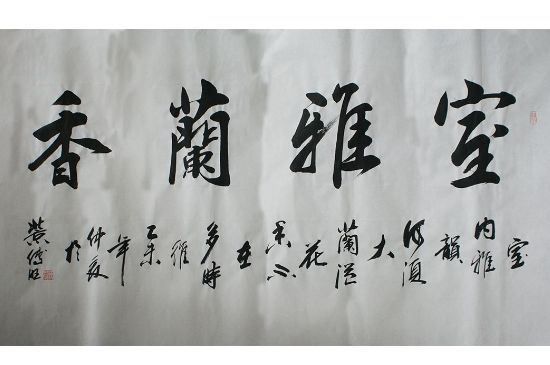 室雅蘭香
室内雅韻何須大蘭溢花香不在多時維乙未年仲夏於